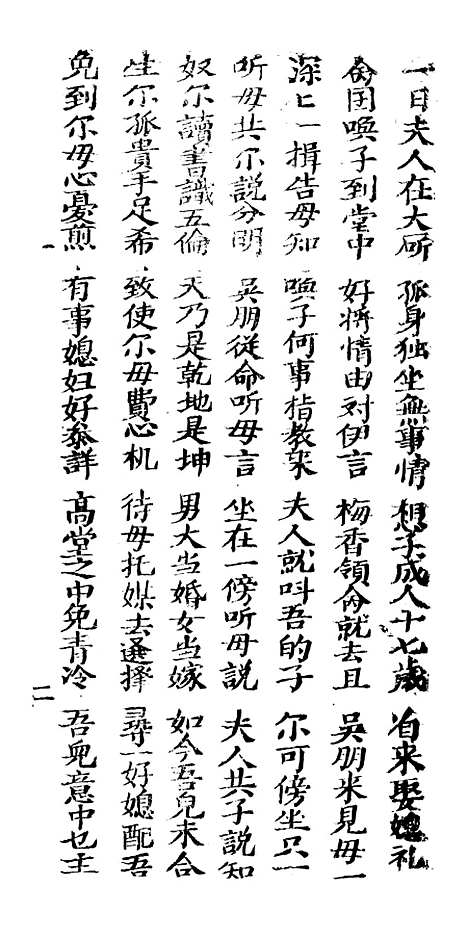 一日夫人在大所 孤身独坐無事情 想子成人十七歲 来娶媳礼
喚子到堂中 好將情由对伊言 梅香領侖就去且 吳朋来見母一
深匕一揖告母知 喚子何事指教来 夫人就呌吾的子 尓可傍坐只一
听母共尓説分明 吳朋従命听母言 坐在一傍听母説 夫人共子説知
奴尓讀書識五倫 天乃是乾地是坤 男大当婚女当嫁 如今吾兒未合
生尓孤貴手足希 致使尓母費心机 待母托媒去選擇 尋一好媳配吾
免到尓母心憂煎 有事媳妇好叅詳 高堂之中免青冷 吾兒意中乜主
二